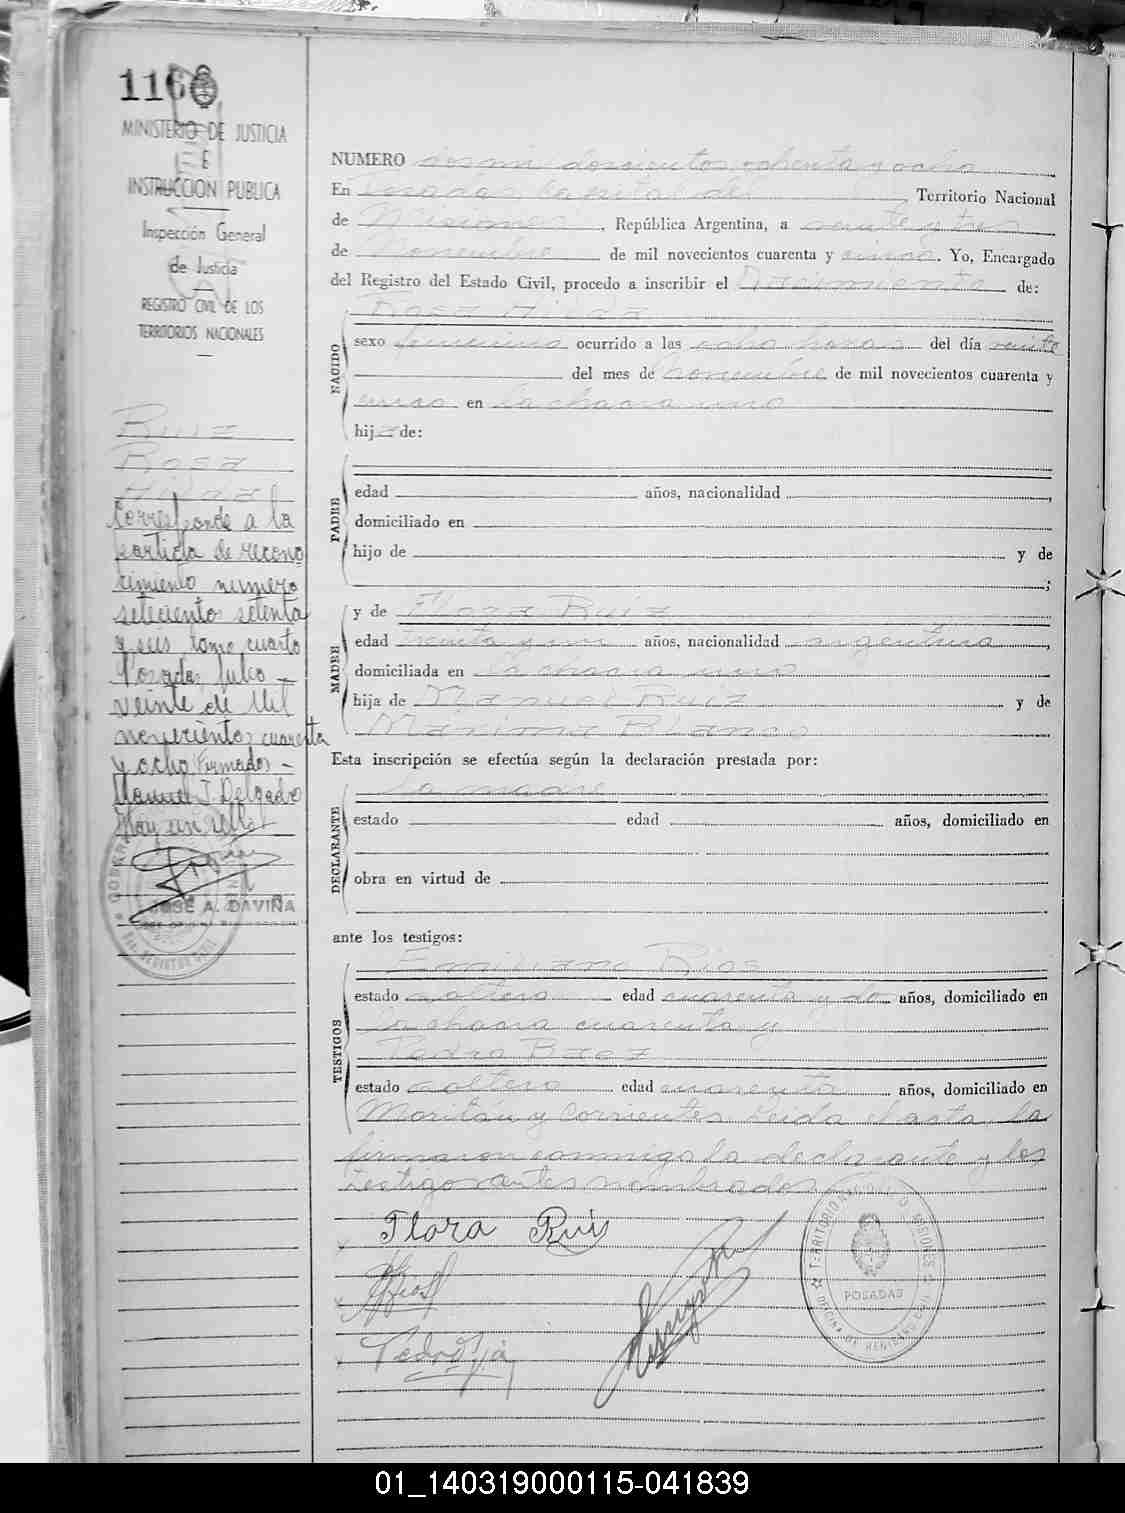 1160
MINISTERIO DE JUSTICIA
E
INSTRUCCION PUBLICA
Inspección General
de Justicia
REGISTRO CIVIL DE LOS
TERRITORIOS NACIONALES
Ruiz
Rosa
Corresponde a la
partida de recono
cimiento numero
setecientos setenta
y seis tomo cuarto
Posadas, Julio -
veinte de Mil
novecientos cuarenta
y ocho Firmados -
Manuel J. Delgado
Hay un sello
JOSÉ A. DAVIÑA
NUMERO dos mil doscientos ochenta y ocho
En Posadas Capital del Territorio Nacional
de Misiones, República Argentina, a veinte y tres
de Noviembre de mil novecientos cuarenta y cinco. Yo, Encargado
del Registro del Estado Civil, procedo a inscribir el Nacimiento de:
Rosa
NACIDO
sexo femenino ocurrido a las ocho horas del día veinte
del mes de noviembre de mil novecientos cuarenta y
cinco en la chacra uno
hija de:
PADRE
edad años, nacionalidad
domiciliado en
hijo de y de
;
MADRE
y de Flora Ruiz
edad treinta y un años, nacionalidad argentina,
domiciliada en la chacra uno
hija de Manuel Ruiz y de
Maxima Blanco
Esta inscripción se efectúa según la declaración prestada por:
DECLARANTE
La madre
estado edad años, domiciliado en
obra en virtud de
ante los testigos:
TESTIGOS
Emiliano Rios
estado soltero edad cuarenta y do años, domiciliado en
la chacra cuarenta y
Pedro Baez
estado soltero edad cuarenta años, domiciliado en
Moritán y Corrientes Leida el acta, la
firmaron conmigo la declarante y los
testigos antes nombrados
Flora Ruis
TERRITORIO NACIONAL D. MISIONES
POSADAS
OFICINA DE REGISTRO CIVIL
01_140319000115-041839